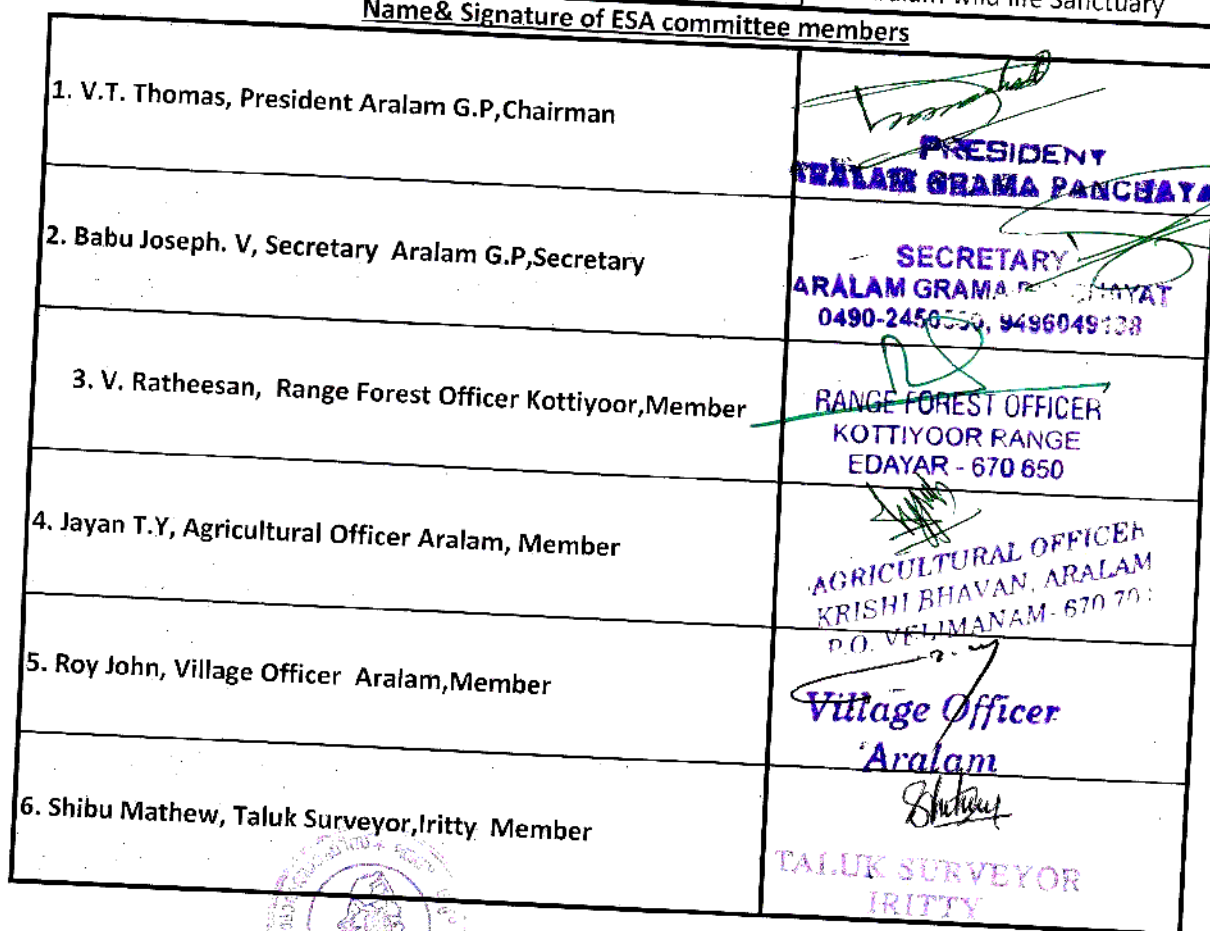 Wild life Sanctuary
Name& Signature of ESA committee members
1. V.T. Thomas, President Aralam G.P,Chairman
PRESIDENT
ARALAM GRAMA PANCHAYA
2. Babu Joseph. V, Secretary Aralam G.P,Secretary
SECRETARY
ARALAM GRAMA
3. V. Ratheesan, Range Forest Officer Kottiyoor,Member
RANGE FOREST OFFICER
KOTTIYOOR RANGE
EDAYAR - 670 650
4. Jayan T.Y, Agricultural Officer Aralam, Member
AGRICULTURAL OFFICER
KRISHI BHAVAN, ARALAM
P.O. VELIMANAM- 670
5. Roy John, Village Officer Aralam,Member
Village Officer
Aralam
6. Shibu Mathew, Taluk Surveyor,Iritty Member
TALUK SURVEYOR
IRITTY